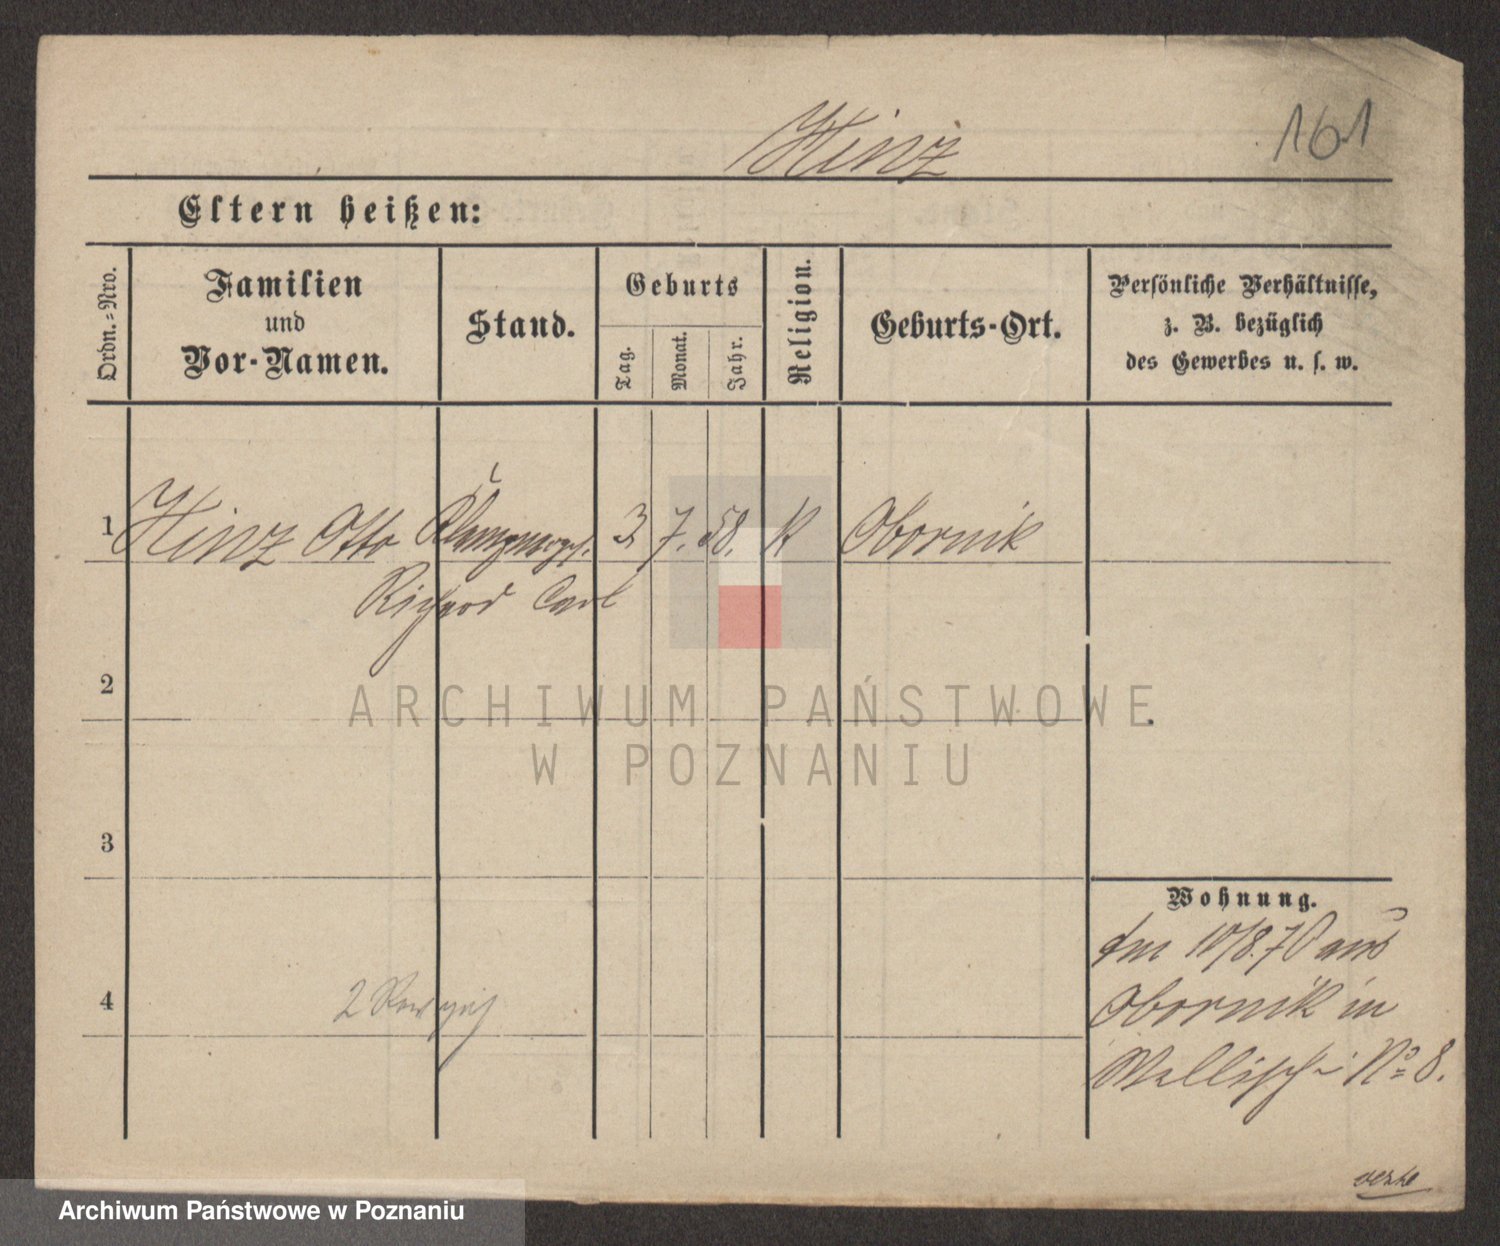 Hinz
161
Eltern heißen:
Ordn.=Nro.
Familien
und
Vor-Namen.
Stand.
Geburts
Tag.
Monat.
Jahr.
Religion.
Geburts-Ort.
Persönliche Verhältnisse,
z. B. bezüglich
des Gewerbes u. s. w.
1 Hinz Otto 3. 7. 58. K Obornik
Richard Carl
2
ARCHIWUM PAŃSTWOWE
W POZNANIU
3
Wohnung.
dm 10/8.70 aus
4
Obornik in
Wallischei No 8.
Archiwum Państwowe w Poznaniu